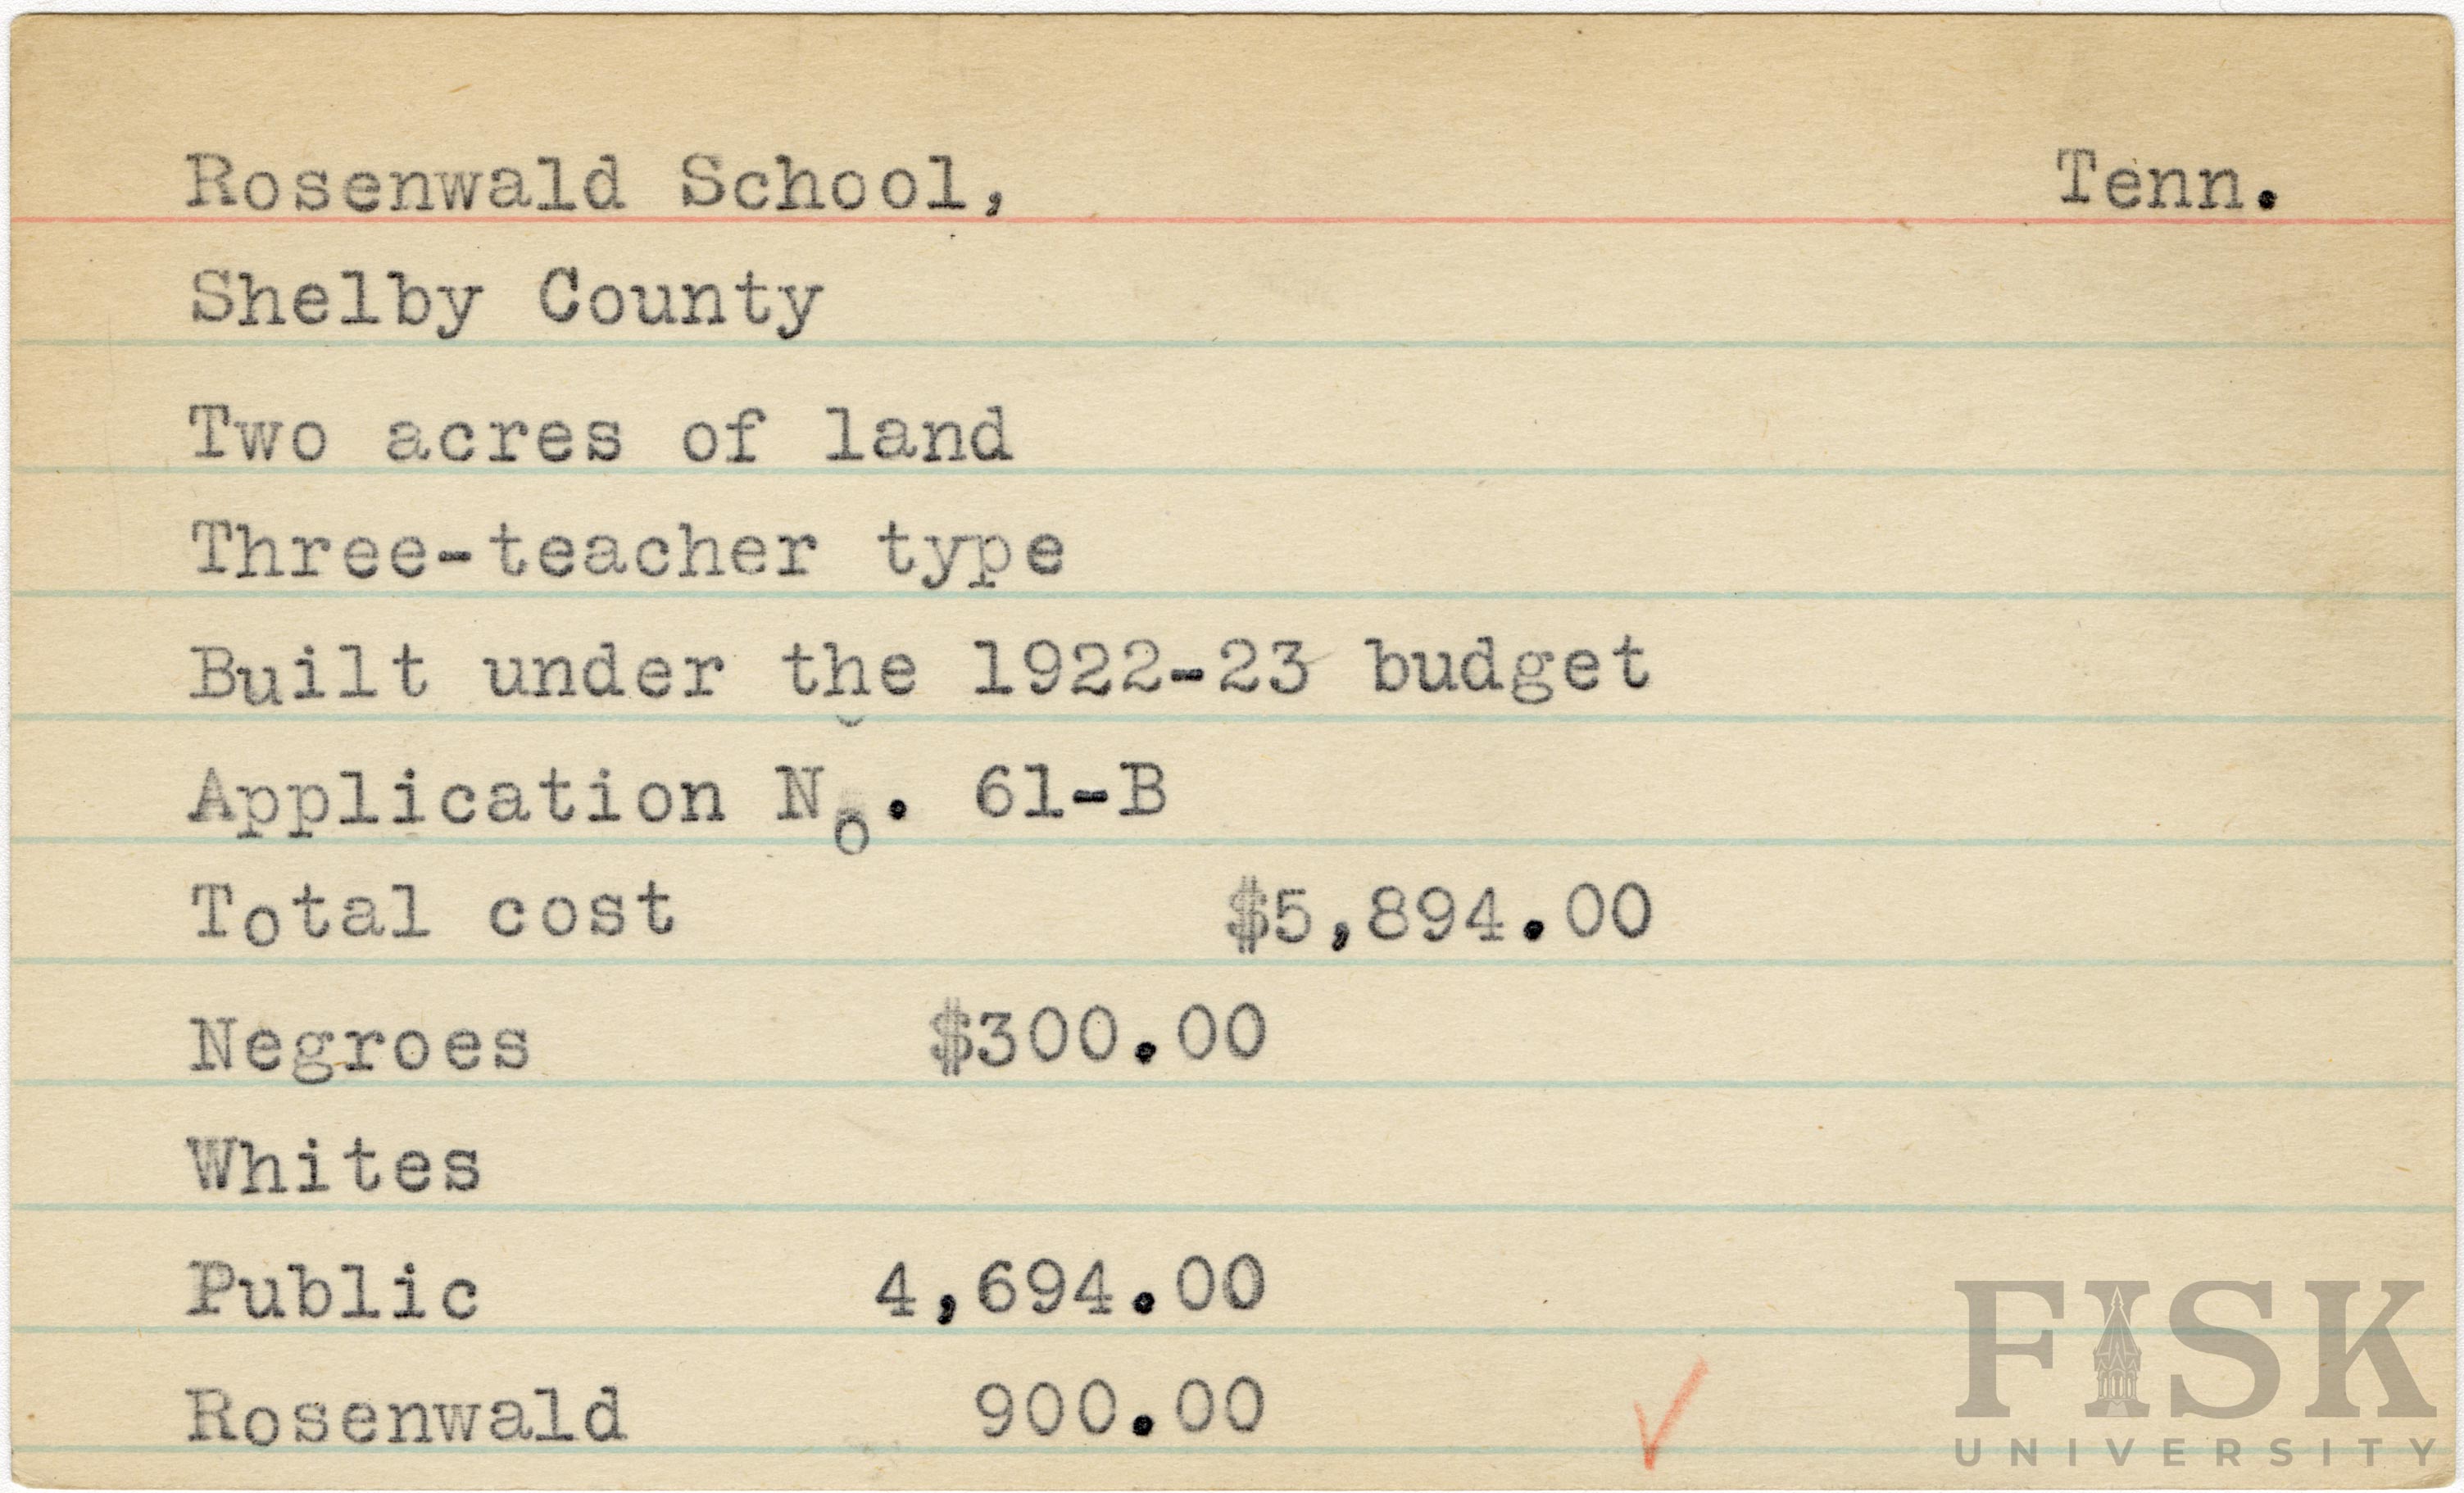 Rosenwald School, Tenn.
Shelby County
Two acres of land
Three-teacher type
Built under the 1922-23 budget
Application No. 61-B
Total cost $5,894.00
Negroes $300.00
Whites
Public 4,694.00
Rosenwald 900.00
FISK
UNIVERSITY